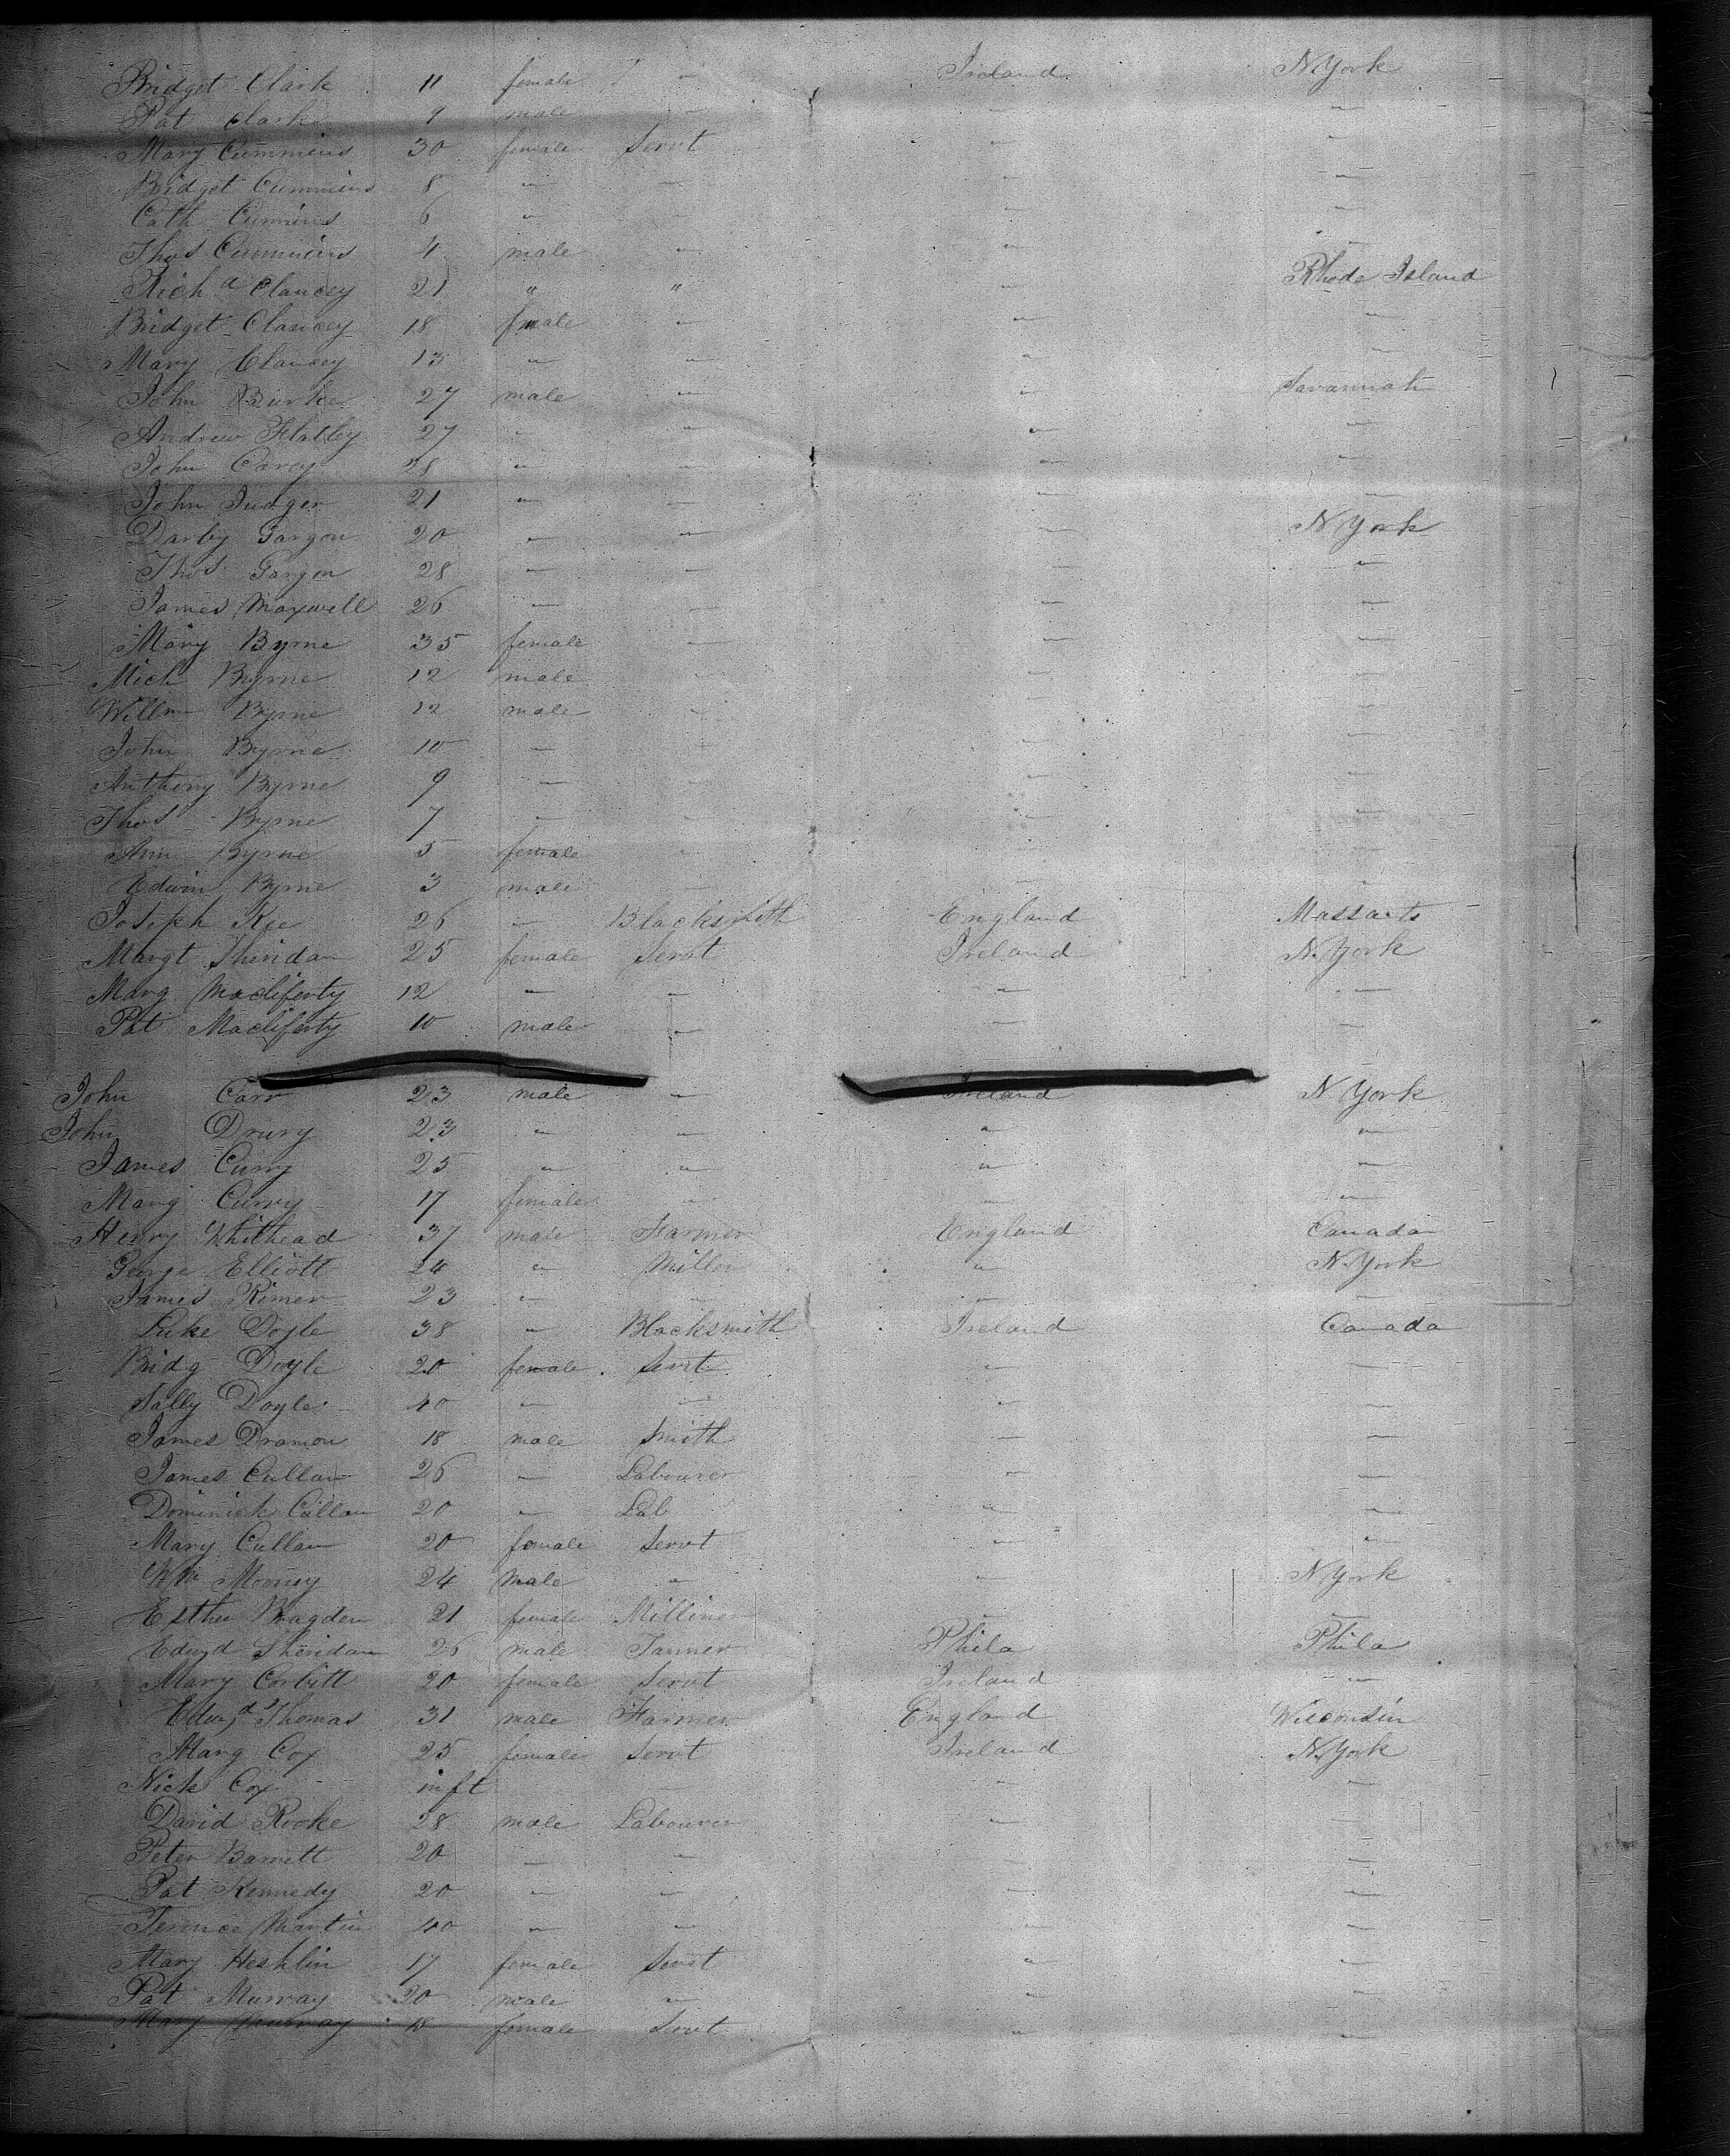 Bridget Clark 11 female " " Ireland N. York
Pat Clark 9 male " " "
Mary Cummins 30 female Servt " "
Bridget Cummins 8 " " " "
Cath Cummins 6 " " "
Thos Cummins 4 male " " "
Richd Clancey 21 " " " Rhode Island
Bridget Clancey 18 female " " "
Mary Clancey 13 " " " "
John Burke 27 male " " Savannah
Andrew Flatley 27 " " " "
John Carey 28 " " " "
John Judger 21 " " " "
Darby Gargon 20 " " " N York
Thos Gargon 28 " " " "
James Maxwell 26 " " " "
Mary Byrne 35 female " " "
Mich Byrne 12 male " " "
Willm Byrne 12 male " " "
John Byrne 10 " " " "
Anthony Byrne 9 " " " "
Thos Byrne 7 " " " "
Ann Byrne 5 female " " "
Edwin Byrne 3 male " " "
Joseph Kee 26 " Blacksmith England Massats
Margt Sheridan 25 female Servt Ireland N. York
Marg Macliferty 12 " " " "
Pat Macliferty 10 male " " "
John Carr 23 male " Ireland N York
John Drury 23 " " " "
James Curry 25 " " " "
Marg Curry 17 female " " "
Henry Whithead 37 male Farmer England Canada
George Elliott 24 " Miller " N. York
James Rimer 23 " " " "
Luke Doyle 38 " Blacksmith Ireland Canada
Bridg Doyle 20 female Servt " "
Sally Doyle 40 " " " "
James Dramon 18 male Smith " "
James Cullan 26 " Labourer " "
Dominick Cullan 20 " Lab " "
Mary Cullan 20 female Servt " "
Wm Mooney 24 male " " N York
Esther Bragden 21 female Milliner " "
Edwd Sheridan 26 male Tanner Phila Phila
Mary Corbitt 20 female Servt Ireland "
Edwd Thomas 31 male Farmer England Wisconsin
Marg Cox 25 female Servt Ireland N. York
Nick Cox inft " " "
David Rooke 28 male Labourer " "
Peter Barrett 20 " " " "
Pat Kennedy 20 " " " "
Terrnce Martin 40 " " " "
Mary Heshlin 17 female Servt " "
Pat Murray 20 male " " "
Mary Murray 18 female Servt " "